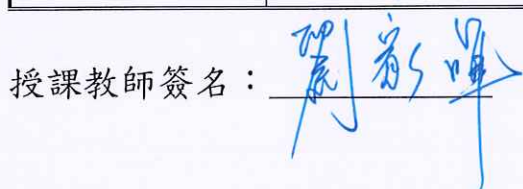 授課教師簽名：劉